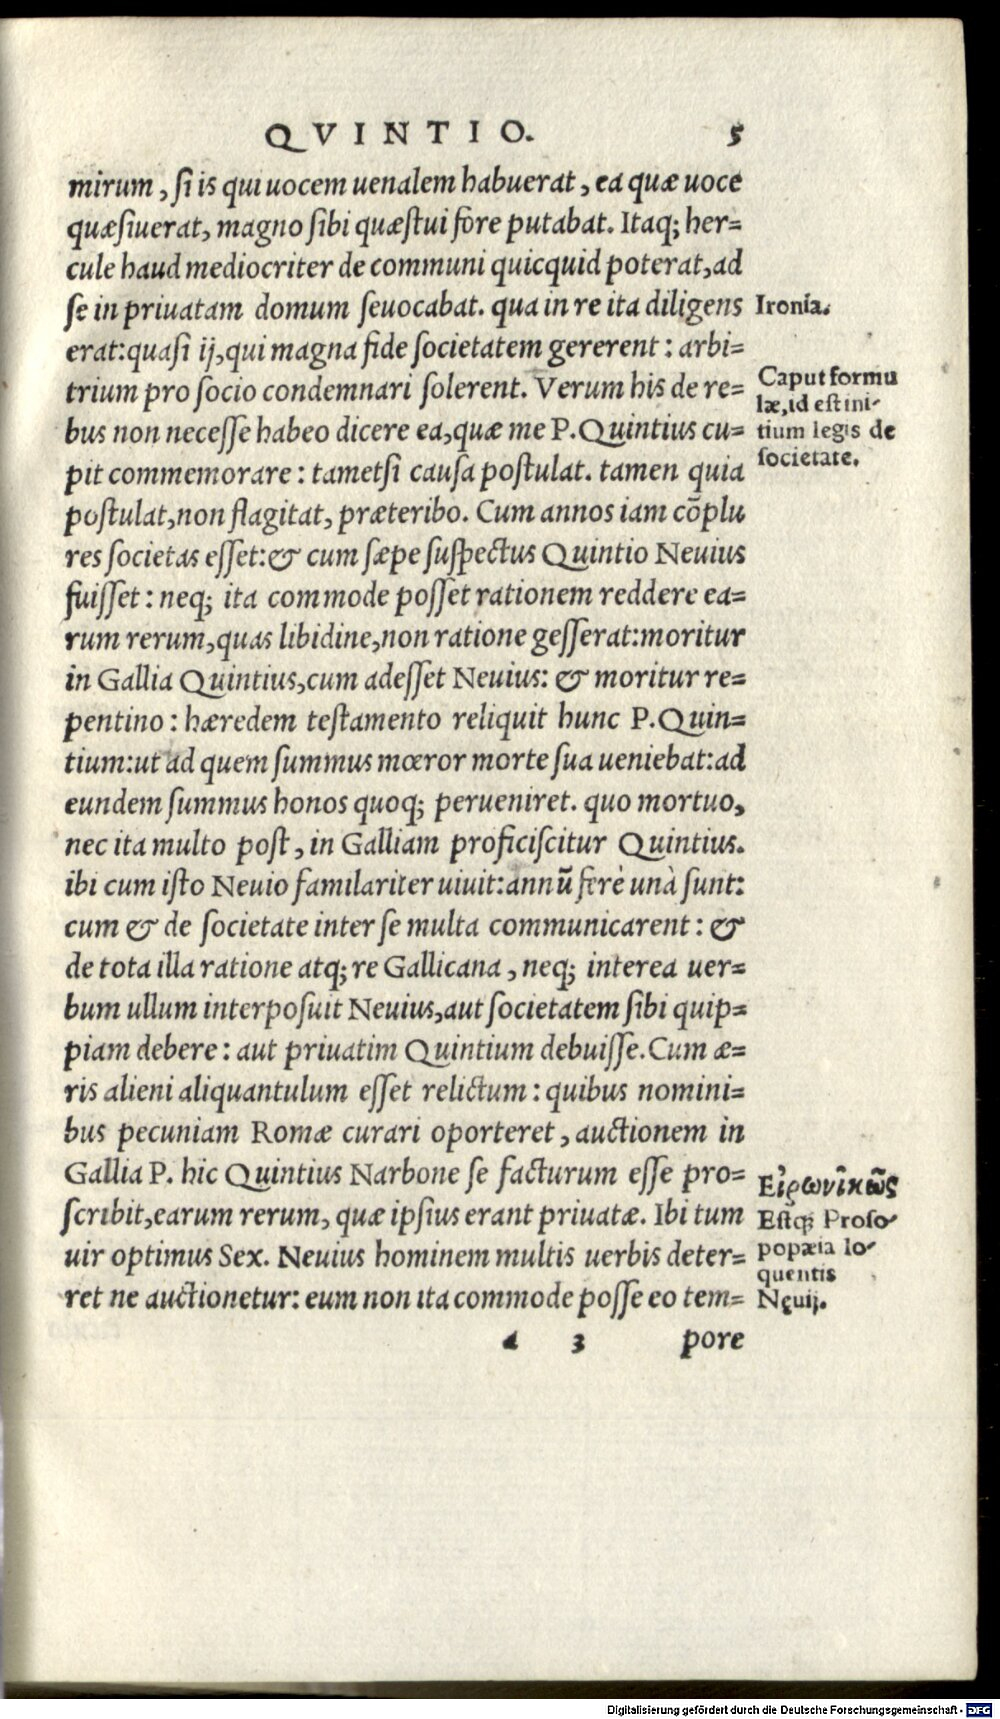 QVINTIO. 5
mirum, si is qui uocem uenalem habuerat, ea quæ uoce
quæsiuerat, magno sibi quæstui fore putabat. Itaq; her=
cule haud mediocriter de communi quicquid poterat, ad
se in priuatam domum seuocabat. qua in re ita diligens
Ironia.
erat: quasi ij, qui magna fide societatem gererent: arbi=
trium pro socio condemnari solerent. Verum his de re=
bus non necesse habeo dicere ea, quæ me P. Quintius cu=
pit commemorare: tametsi causa postulat. tamen quia
Caput formu
læ, id est ini-
tium legis de
societate.
postulat, non flagitat, præteribo. Cum annos iam cōplu
res societas esset: & cum sæpe suspectus Quintio Neuius
fuisset: neq; ita commode posset rationem reddere ea=
rum rerum, quas libidine, non ratione gesserat: moritur
in Gallia Quintius, cum adesset Neuius: & moritur re=
pentino: hæredem testamento reliquit hunc P. Quin=
tium: ut ad quem summus mœror morte sua ueniebat: ad
eundem summus honos quoq; perueniret. quo mortuo,
nec ita multo post, in Galliam proficiscitur Quintius.
ibi cum isto Neuio familariter uiuit: annū ferè unà sunt:
cum & de societate inter se multa communicarent: &
de tota illa ratione atq; re Gallicana, neq; interea uer=
bum ullum interposuit Neuius, aut societatem sibi quip=
piam debere: aut priuatim Quintium debuisse. Cum æ=
ris alieni aliquantulum esset relictum: quibus nomini=
bus pecuniam Romæ curari oporteret, auctionem in
Gallia P. hic Quintius Narbone se facturum esse pro=
scribit, earum rerum, quæ ipsius erant priuatæ. Ibi tum
uir optimus Sex. Neuius hominem multis uerbis deter=
ret ne auctionetur: eum non ita commode posse eo tem=
Εἰρωνικῶς
Estq; Proso-
popæia lo-
quentis
Nęuij.
a 3 pore
Digitalisierung gefördert durch die Deutsche Forschungsgemeinschaft - DFG